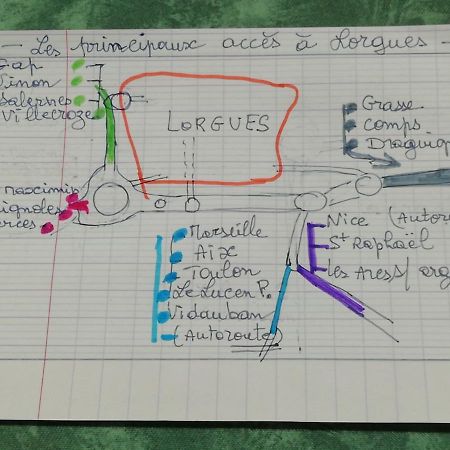 - Les principaux accès à Lorgues -
Gap
Vinon
Salernes
Villecroze
LORGUES
Grasse
Comps
Draguig
maximin
ignoles
erces
Marseille
Aix
Toulon
Le Luc en P.
Vidauban
(Autoroute)
Nice (Autorou
St Raphaël
les Arcs/ arg